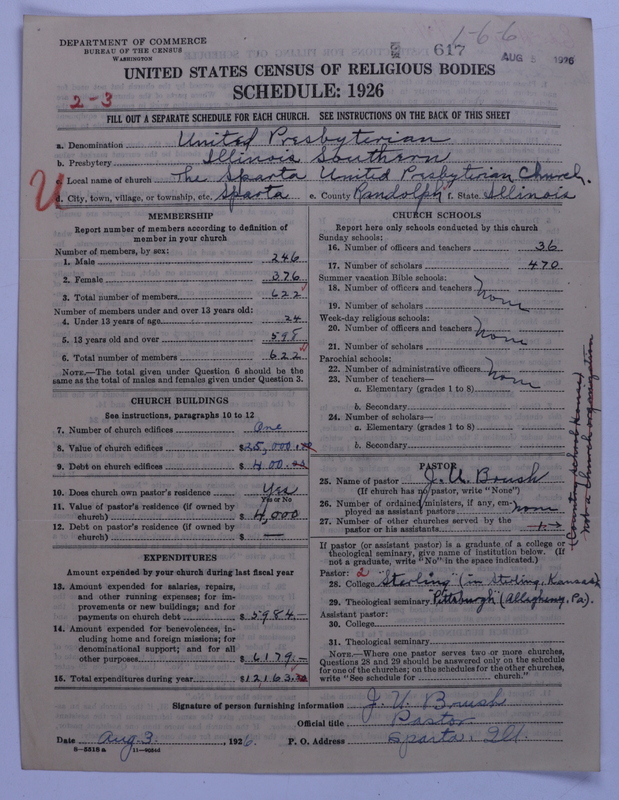 DEPARTMENT OF COMMERCE
BUREAU OF THE CENSUS
WASHINGTON
617
1-6-6
AUG 5 1926
UNITED STATES CENSUS OF RELIGIOUS BODIES
SCHEDULE: 1926
2-3
FILL OUT A SEPARATE SCHEDULE FOR EACH CHURCH. SEE INSTRUCTIONS ON THE BACK OF THIS SHEET
a. Denomination United Presbyterian
b. Presbytery Illinois Southern
c. Local name of church The Sparta United Presbyterian Church.
U
d. City, town, village, or township, etc. Sparta e. County Randolph f. State Illinois
MEMBERSHIP
Report number of members according to definition of
member in your church
Number of members, by sex:
1. Male 246
2. Female 376
3. Total number of members 622
Number of members under and over 13 years old:
4. Under 13 years of age 24
5. 13 years old and over 598
6. Total number of members 622
NOTE.—The total given under Question 6 should be the
same as the total of males and females given under Question 3.
CHURCH BUILDINGS
See instructions, paragraphs 10 to 12
7. Number of church edifices One
8. Value of church edifices $25,000.00
9. Debt on church edifices $400.00
10. Does church own pastor's residence Yes
Yes or No
11. Value of pastor's residence (if owned by
church) $4,000
12. Debt on pastor's residence (if owned by
church) $ —
EXPENDITURES
Amount expended by your church during last fiscal year
13. Amount expended for salaries, repairs,
and other running expenses; for im-
provements or new buildings; and for
payments on church debt $5984.—
14. Amount expended for benevolences, in-
cluding home and foreign missions; for
denominational support; and for all
other purposes $6179.—
15. Total expenditures during year $12163.00
CHURCH SCHOOLS
Report here only schools conducted by this church
Sunday schools:
16. Number of officers and teachers 36
17. Number of scholars 470
Summer vacation Bible schools:
18. Number of officers and teachers None
19. Number of scholars
Week-day religious schools:
20. Number of officers and teachers None
21. Number of scholars
Parochial schools:
22. Number of administrative officers None
23. Number of teachers—
a. Elementary (grades 1 to 8)
b. Secondary
24. Number of scholars—
a. Elementary (grades 1 to 8)
b. Secondary
PASTOR
25. Name of pastor J. U. Brush
(If church has no pastor, write "None")
26. Number of ordained ministers, if any, em-
ployed as assistant pastors None
27. Number of other churches served by the
pastor or his assistants 1
(Country school house)
not a church organization
If pastor (or assistant pastor) is a graduate of a college or
theological seminary, give name of institution below. (If
not a graduate, write "No" in the space indicated.)
Pastor: 2
28. College "Sterling" (in Sterling, Kansas)
29. Theological seminary "Pittsburgh" (Allegheny, Pa).
Assistant pastor:
30. College
31. Theological seminary
NOTE.—Where one pastor serves two or more churches,
Questions 28 and 29 should be answered only on the schedule
for one of the churches; on the schedules for the other churches,
write "See schedule for church."
Signature of person furnishing information J. U. Brush
Official title Pastor
Date Aug. 3, 1926 P. O. Address Sparta, Ill.